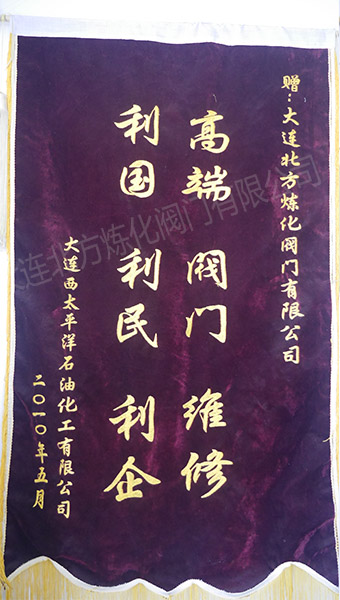 赠：大连北方炼化阀门有限公司
高端 阀门 维修
利国 利民 利企
大连西太平洋石油化工有限公司
二〇一〇年五月
大连北方炼化阀门有限公司